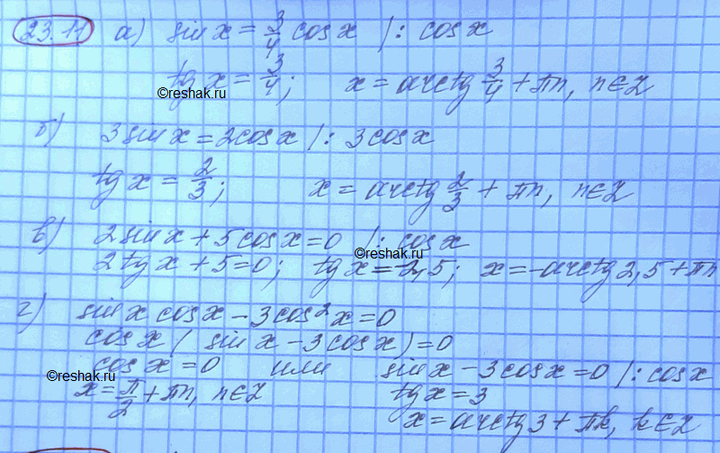 23.11 а) sin x = 3/4 cos x /: cos x
tg x = 3/4; x = arctg 3/4 + πn, n∈Z
©reshak.ru
б) 3 sin x = 2 cos x /: 3 cos x
tg x = 2/3; x = arctg 2/3 + πn, n∈Z
в) 2 sin x + 5 cos x = 0 /: cos x
©reshak.ru
2 tg x + 5 = 0; tg x = -2,5; x = -arctg 2,5 + πn
г) sin x cos x - 3 cos² x = 0
cos x ( sin x - 3 cos x) = 0
cos x = 0 или sin x - 3 cos x = 0 /: cos x
©reshak.ru
x = π/2 + πn, n∈Z tg x = 3
x = arctg 3 + πk, k∈Z